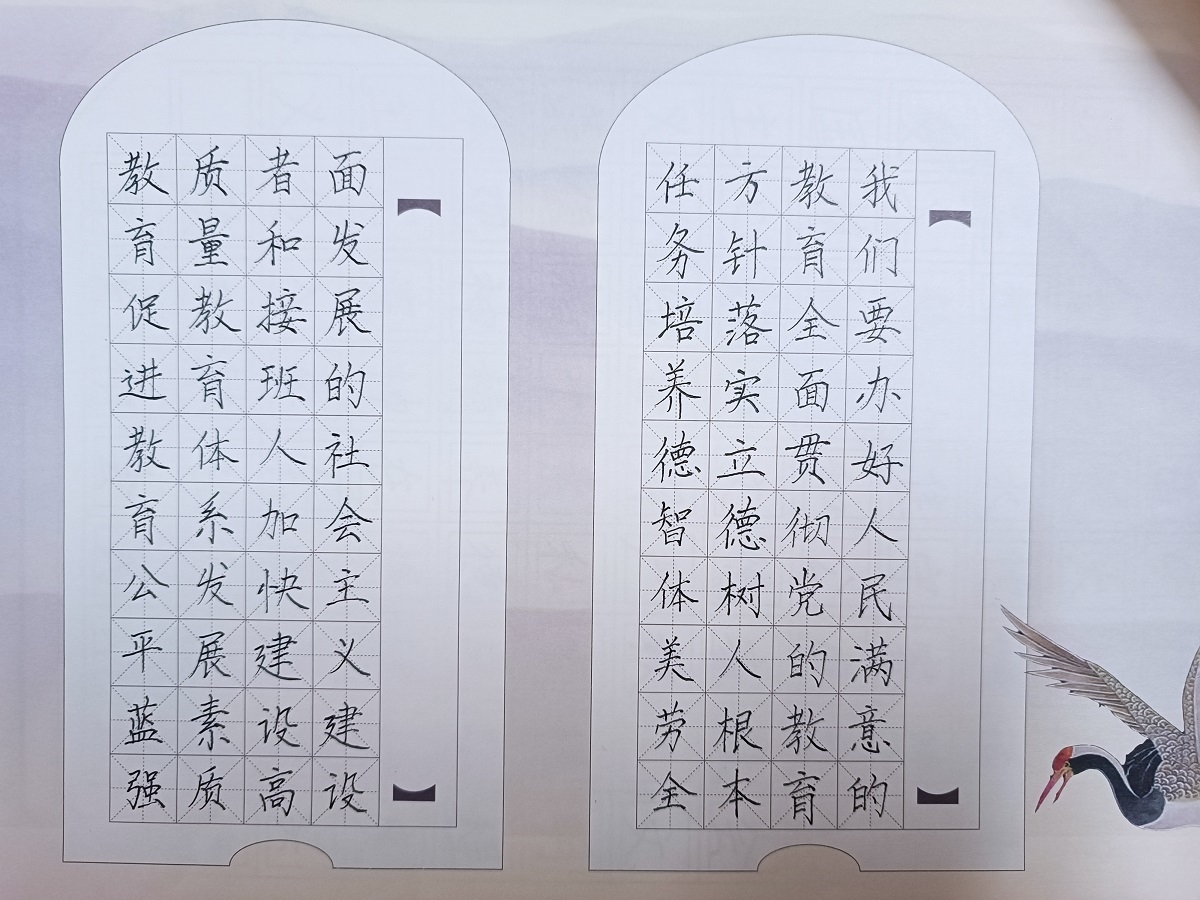 我们要办好人民满意的
教育全面贯彻党的教育
方针落实立德树人根本
任务培养德智体美劳全
面发展的社会主义建设
者和接班人加快建设高
质量教育体系发展素质
教育促进教育公平蓝强